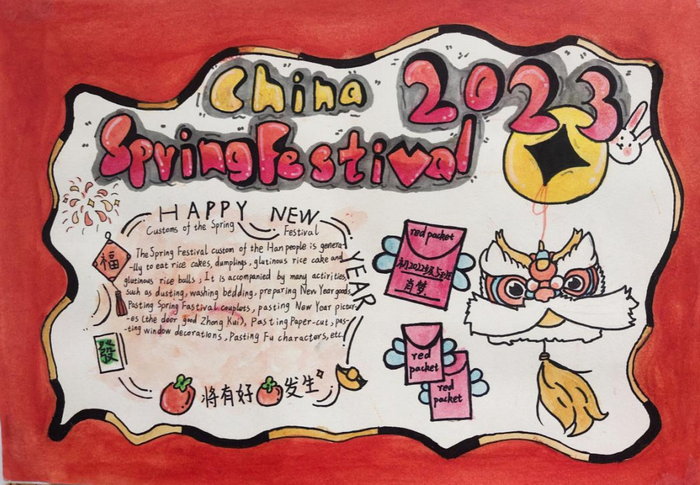 China 2023
Spring Festival
HAPPY NEW YEAR
Customs of the Spring Festival
The Spring Festival custom of the Han people is general-
-lly to eat rice cakes, dumplings, glutinous rice cake and
glutinous rice bulls, It is accompanied by many activities,
such as dusting, washing bedding, preparing New Year goods,
Pasting Spring Fastival couplets, pasting New Year pictur-
-es (the door god Zhong Kui), Pasting Paper-cut, pas-
-ting window decorations, Pasting Fu charactors, etc.
福
發
将有好 发生
red packet
初2022级5班
肖梦
red
packet
red
packet